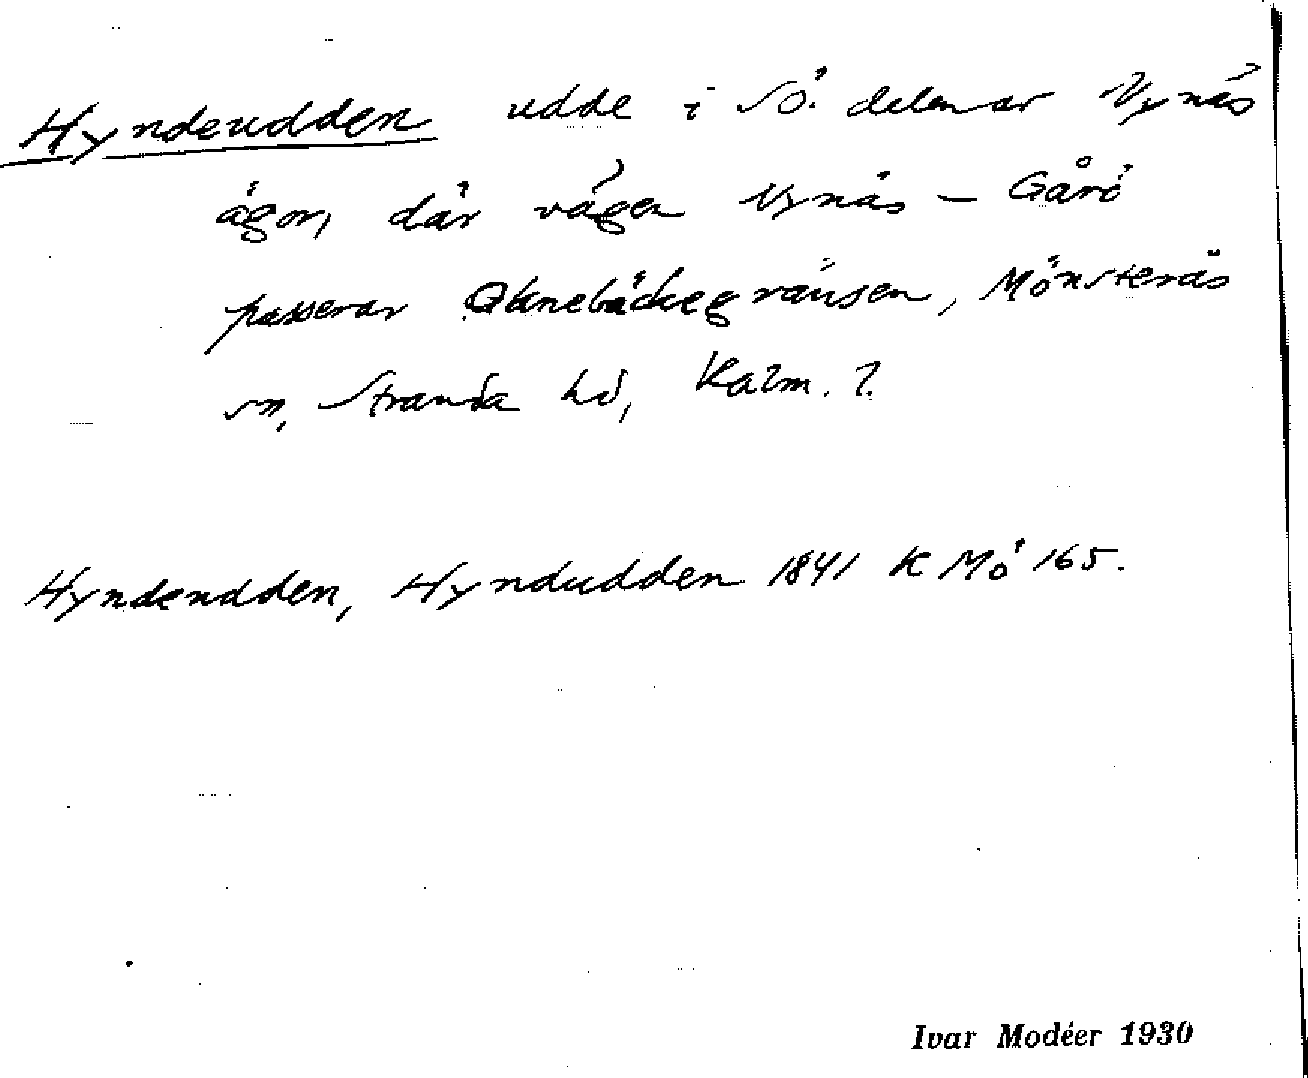 Hyndeudden udde i SÖ. delen av Vynäs
ägor, där vägen Vynäs – Gårö
passerar Oknebäcksgränsen, Mönsterås
sn, Stranda hd, Kalm. l.
Hyndeudden, Hyndudden 1841 K Mö 165.
Ivar Modéer 1930